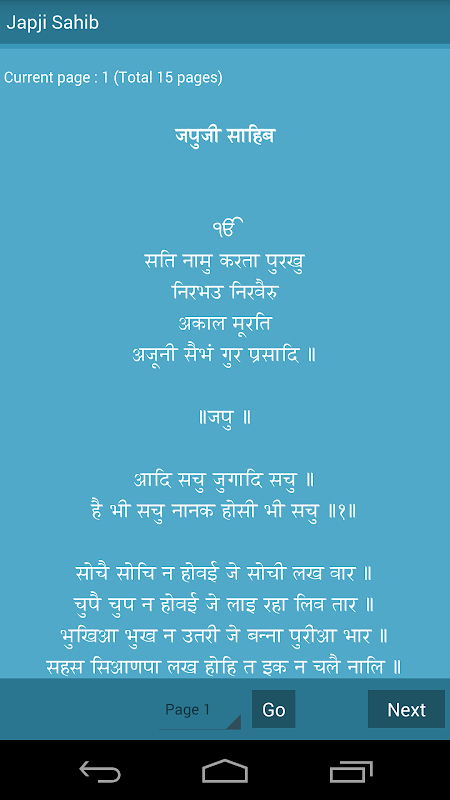 Japji Sahib
Current page : 1 (Total 15 pages)
जपुजी साहिब
ੴ
सति नामु करता पुरखु
निरभउ निरवैरु
अकाल मूरति
अजूनी सैभं गुर प्रसादि ॥
॥जपु ॥
आदि सचु जुगादि सचु ॥
है भी सचु नानक होसी भी सचु ॥१॥
सोचै सोचि न होवई जे सोची लख वार ॥
चुपै चुप न होवई जे लाइ रहा लिव तार ॥
भुखिआ भुख न उतरी जे बन्ना पुरीआ भार ॥
सहस सिआणपा लख होहि त इक न चलै नालि ॥
Page 1
Go
Next